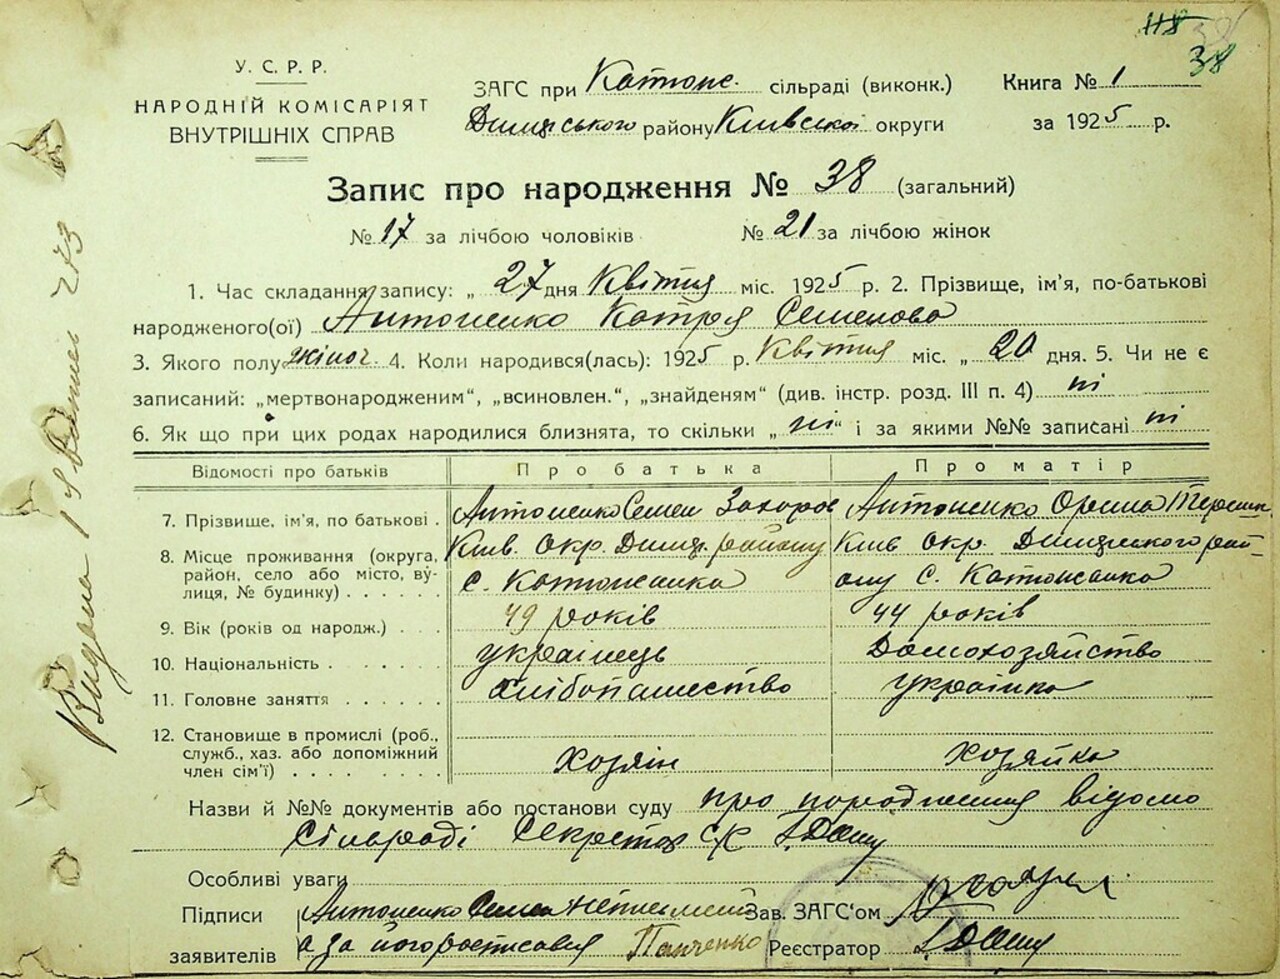 118
38
У. С. Р. Р.
НАРОДНІЙ КОМІСАРІЯТ
ВНУТРІШНІХ СПРАВ
ЗАГС при Катюж. сільраді (виконк.)
Димерського району Київської округи
Книга № 1
за 1925 р.
Запис про народження № 38 (загальний)
№ 17 за лічбою чоловіків № 21 за лічбою жінок
1. Час складання запису: „ 27 дня Квітня міс. 1925 р. 2. Прізвище, ім'я, по-батькові
народженого(ої) Антоненко Катря Семенова
3. Якого полу жіноч 4. Коли народився(лась): 1925 р. Квітня міс. „ 20 дня. 5. Чи не є
записаний: „мертвонародженим“, „всиновлен.“, „знайденям“ (див. інстр. розд. III п. 4) ні
6. Як що при цих родах народилися близнята, то скільки „ ні “ і за якими №№ записані ні
Відомості про батьків Про батька Про матір
7. Прізвище, ім'я, по батькові . Антоненко Семен Захаров Антоненко Орина
8. Місце проживання (округа, район, село або місто, вулиця, № будинку) . . . . . .
Київ. Окр. Димер. району с. Катюжанка
Київ Окр. Димерського району с. Катюжанка
9. Вік (років од народж.) . . . 49 років 44 років
10. Національність . . . . . . українець Домохозяйство
11. Головне заняття . . . . . . хлібопашество українка
12. Становище в промислі (роб., служб., хаз. або допоміжний член сім'ї) . . . . . . . хозяін хозяйка
Назви й №№ документів або постанови суду про народження відомо
Сільраді Секретар С/К
Особливі уваги
Підписи заявителів
Антоненко Семен неписьмений
а за його росписався Панченко
Зав. ЗАГС'ом
Реєстратор
Видана 18 273